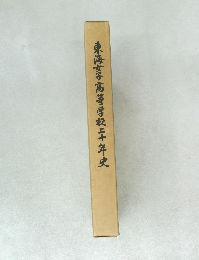 東海女子高等学校二十年史